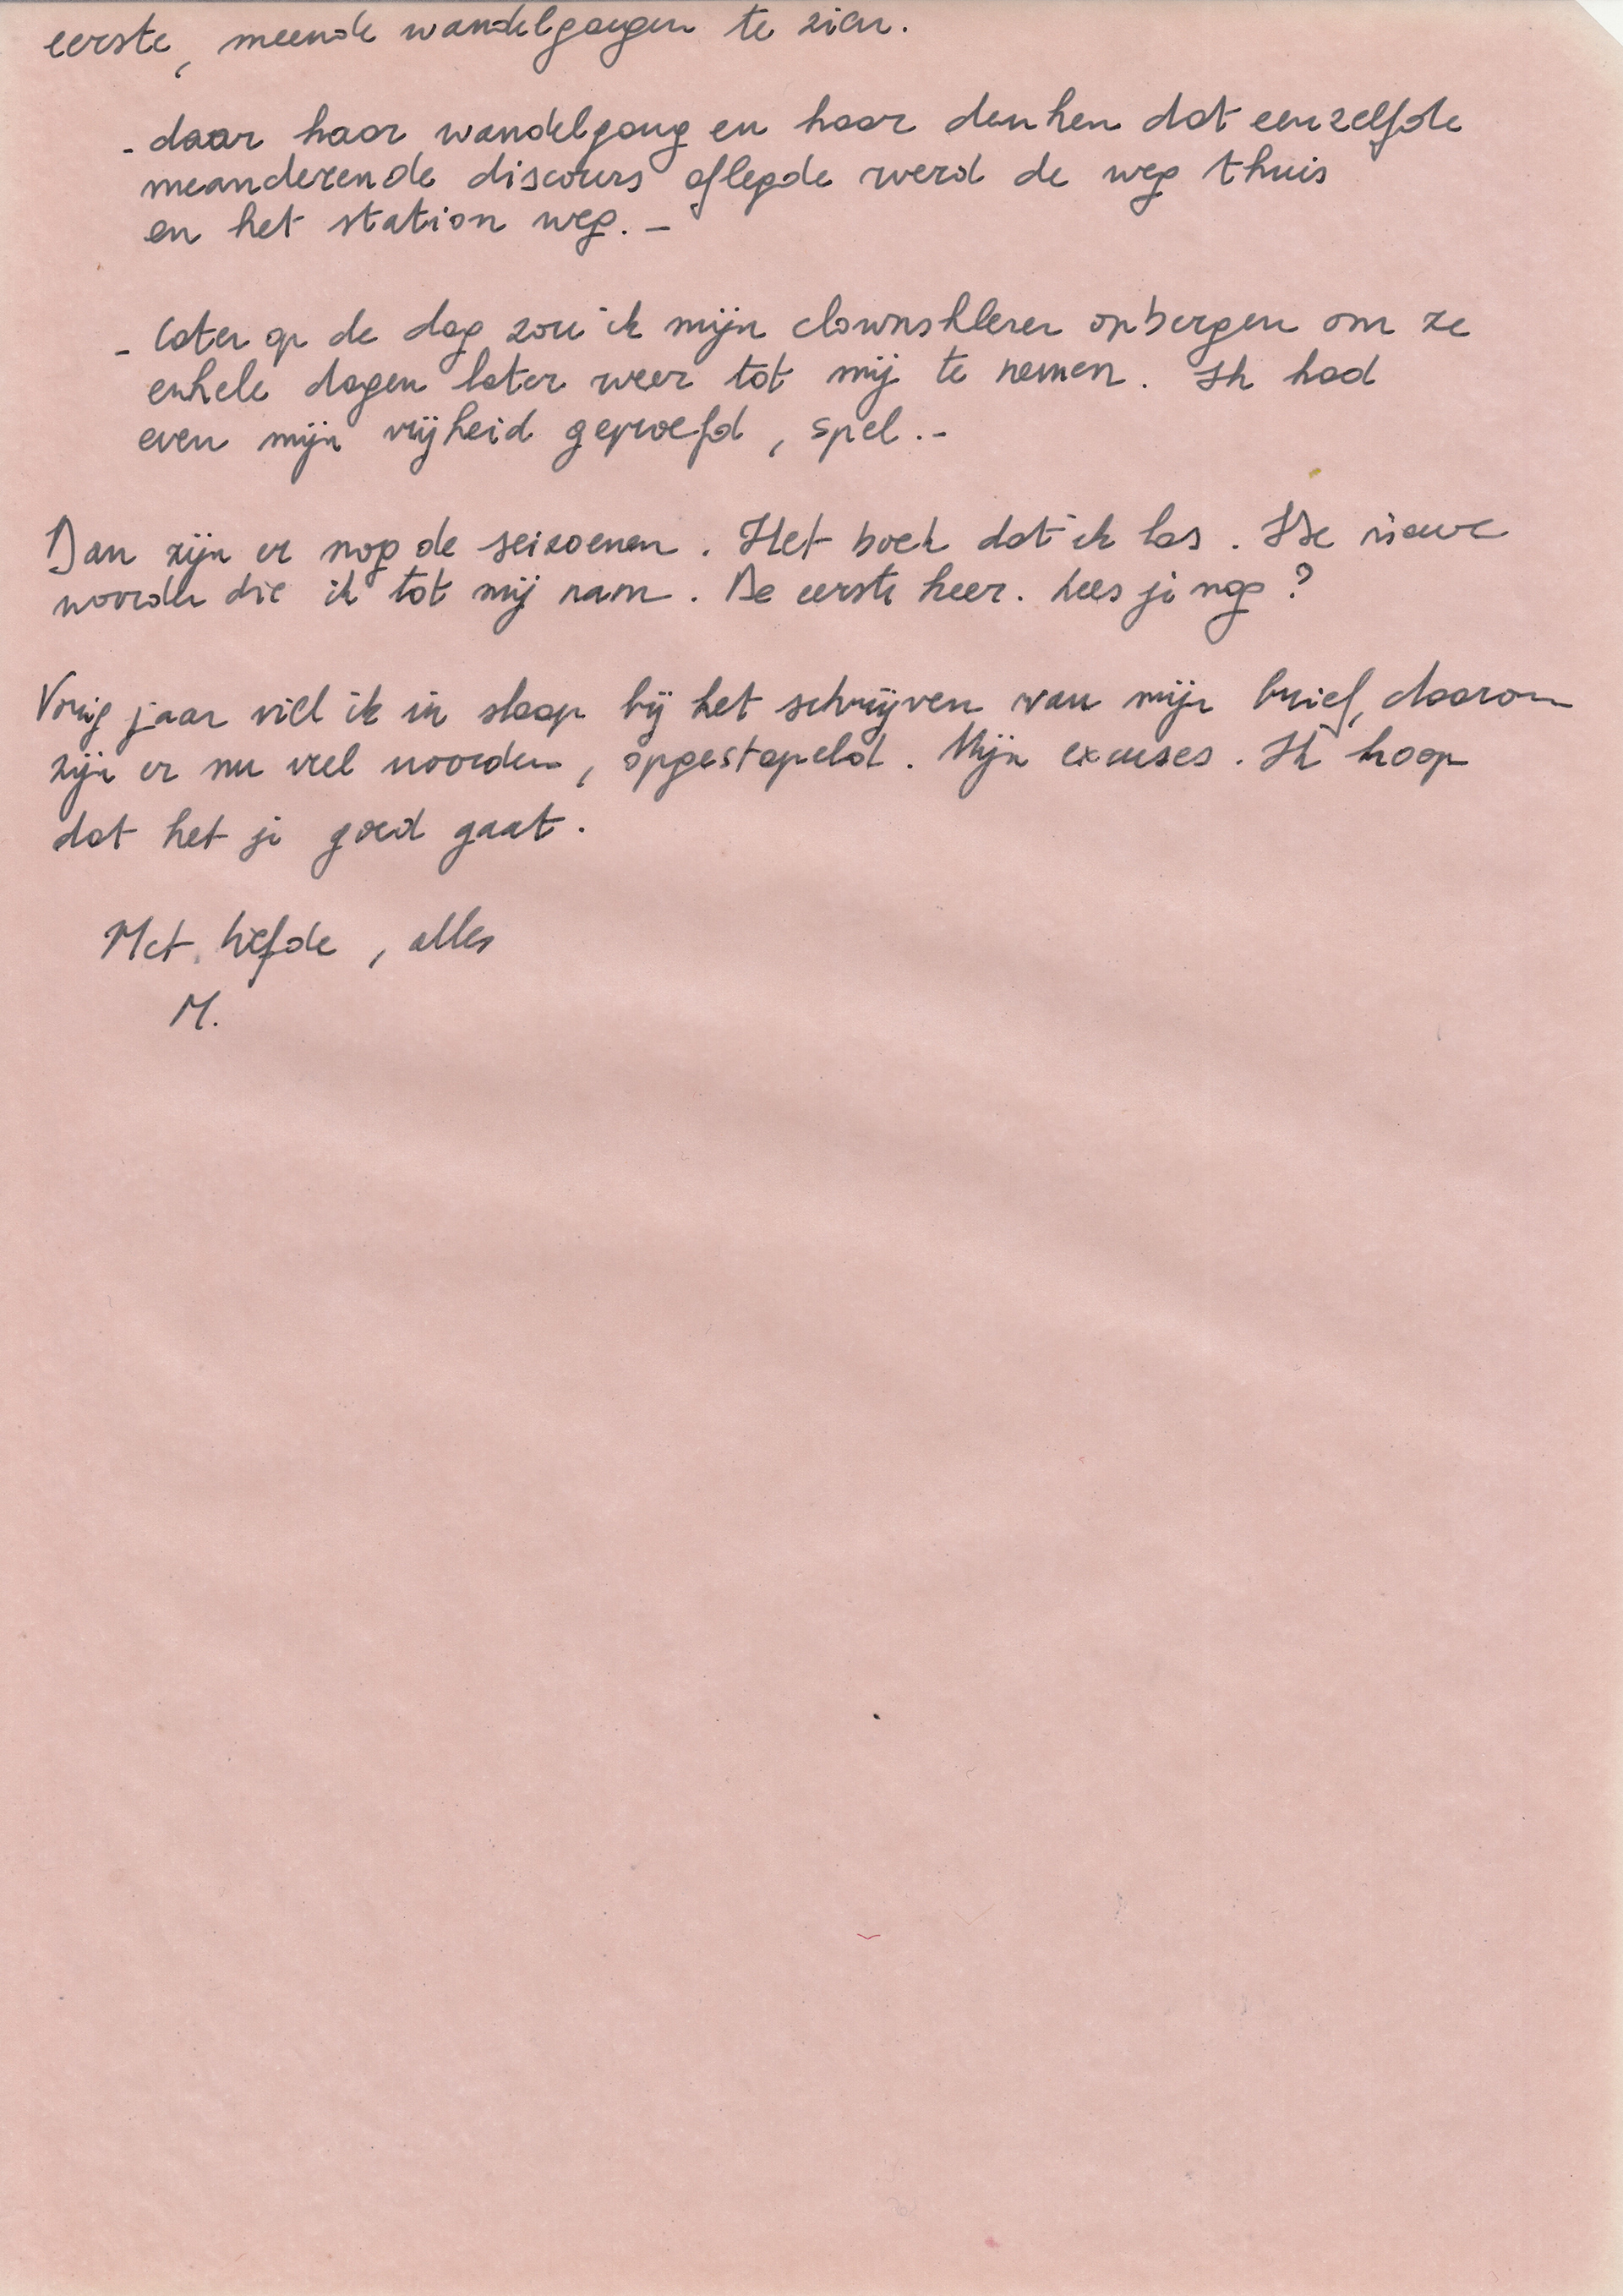 eerste, meende wandelgangen te zien.
- daar haar wandelgang en haar denken dat eenzelfde
meanderende discours aflegde werd de weg thuis
en het station weg. -
- later op de dag zou ik mijn clownskleren opbergen om ze
enkele dagen later weer tot mij te nemen. Ik had
even mijn vrijheid geproefd, spel. -
Dan zijn er nog de seizoenen. Het boek dat ik las. De nieuwe
woorden die ik tot mij nam. De eerste keer. Lees je nog?
Vorig jaar viel ik in slaap bij het schrijven van mijn brief, daarom
zijn er nu veel woorden, opgestapeld. Mijn excuses. Ik hoop
dat het je goed gaat.
Met liefde, alles
M.